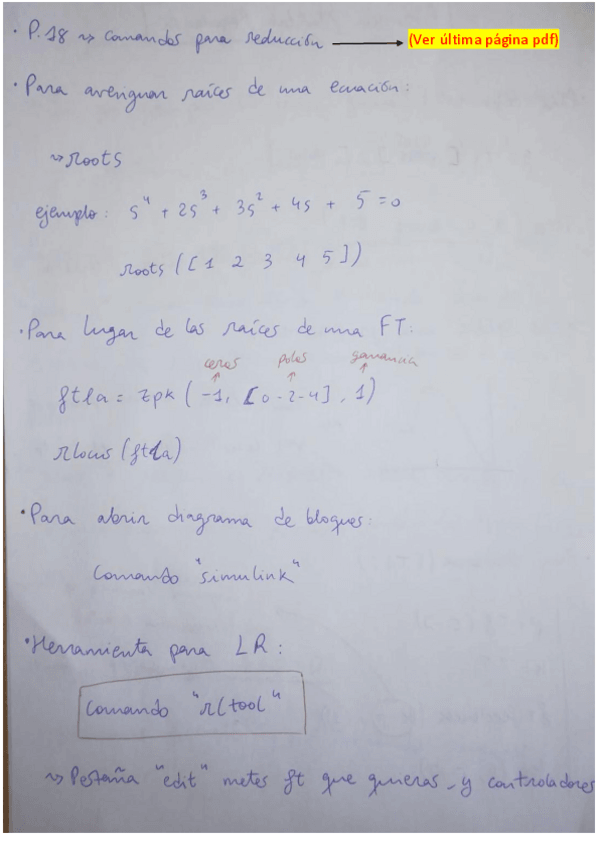 · P.18 ~> comandos para reducción ⟶ (Ver última página pdf)
· Para averiguar raíces de una ecuación:
~> roots
ejemplo: s⁴ + 2s³ + 3s² + 4s + 5 = 0
roots ([1 2 3 4 5])
· Para lugar de las raíces de una FT:
ceros polos ganancia
ftla = zpk (-1, [0 -2 -4], 1)
rlocus (ftla)
· Para abrir diagrama de bloques:
Comando "simulink"
· Herramienta para LR:
Comando "rltool"
~> Pestaña "edit" metes ft que quieras, y controladores